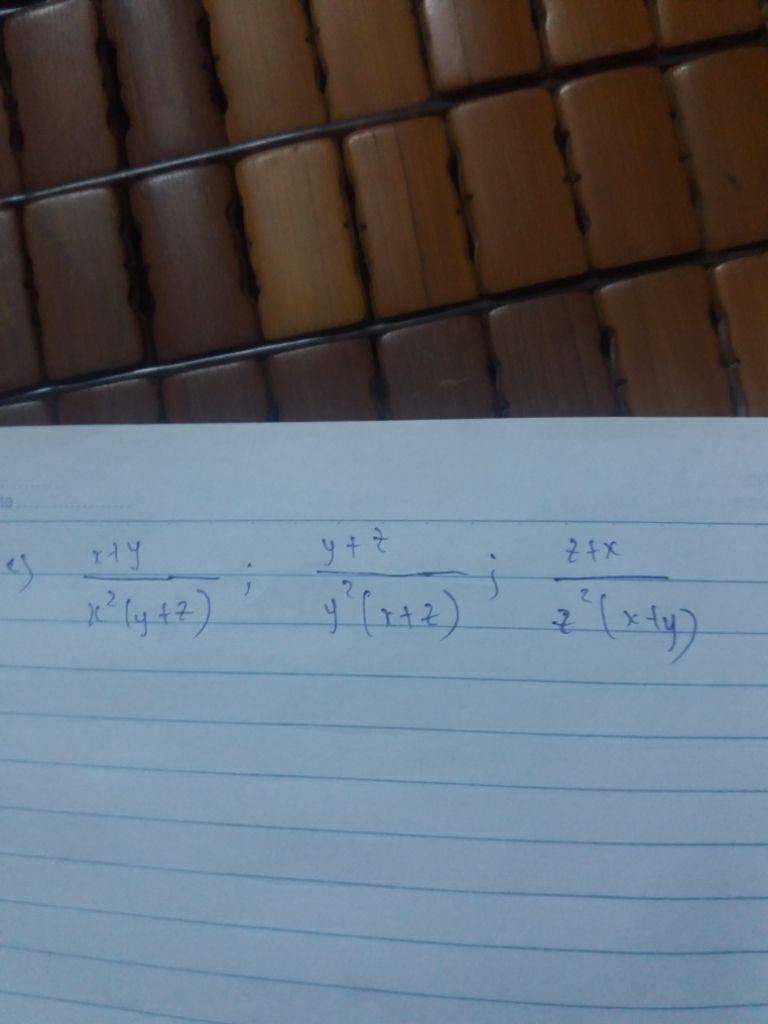 c) x+y / x²(y+z) ; y+z / y²(x+z) ; z+x / z²(x+y)